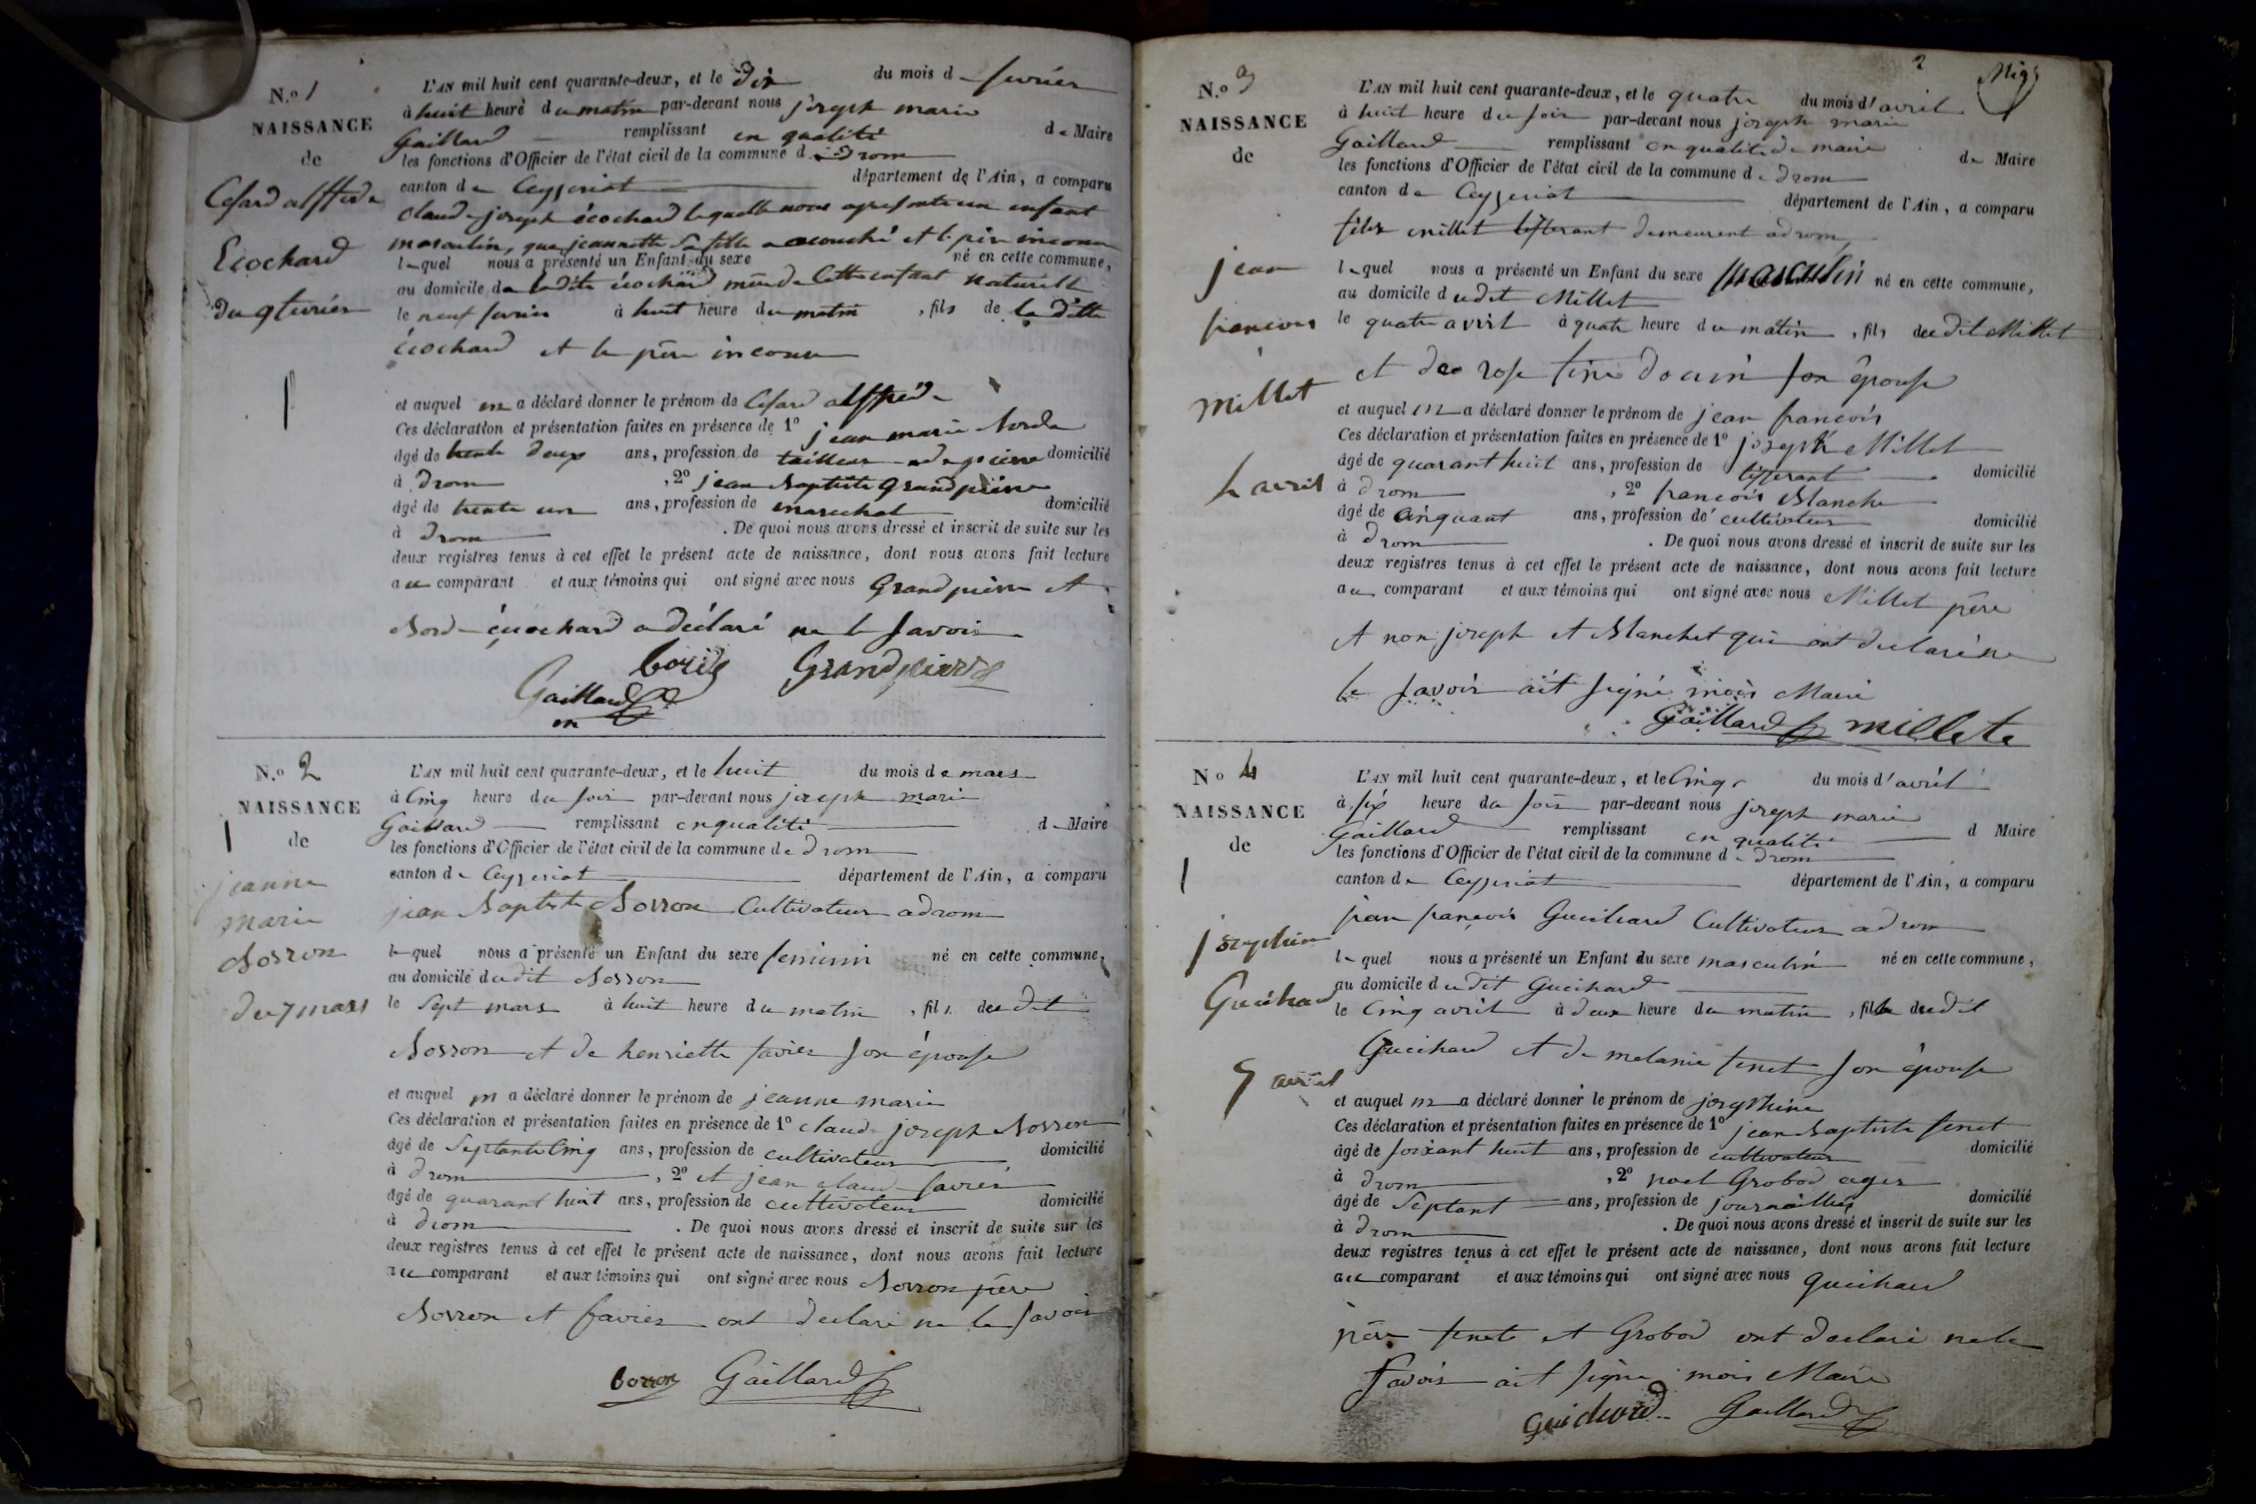 N.º 1
NAISSANCE
de
Cesard alffrede
Ecochard
du 9 fevrier
L'AN mil huit cent quarante-deux, et le dix du mois d fevrier
à huit heure du matin par-devant nous joseph marie
Gaillard remplissant en qualité de Maire
les fonctions d'Officier de l'état civil de la commune de Drom
canton de Ceyzeriat département de l'Ain, a comparu
Claude joseph écochard lequelle nous a presente un enfant
masculin, que jeannette sa fille a acouché et le père inconu
lequel nous a présenté un Enfant du sexe né en cette commune,
au domicile de ladite écochard mère de cette enfant naturelle
le neuf fevrier à huit heure du matin, fils de la ditte
écochard et le père inconu
et auquel on a déclaré donner le prénom de Cesard alffréde
Ces déclaration et présentation faites en présence de 1º jean marie Borde
âgé de trente deux ans, profession de tailleur domicilié
à Drom, 2º jean Baptiste Grandpierre
âgé de trente un ans, profession de marechal domicilié
à Drom. De quoi nous avons dressé et inscrit de suite sur les
deux registres tenus à cet effet le présent acte de naissance, dont nous avons fait lecture
au comparant et aux témoins qui ont signé avec nous Grandpierre et
Borde écochard a déclaré ne le savoir
Grandpierre
Gaillard
N.º 2
NAISSANCE
de
jeanne
marie
Borron
du 7 mars
L'AN mil huit cent quarante-deux, et le huit du mois de mars
à cinq heure du soir par-devant nous joseph marie
Gaillard remplissant en qualité d Maire
les fonctions d'Officier de l'état civil de la commune de Drom
canton de Ceyzeriat département de l'Ain, a comparu
jean Baptiste Borron Cultivateur a drom
lequel nous a présenté un Enfant du sexe feminin né en cette commune,
au domicile dudit Borron
le Sept mars à huit heure du matin, fils dudit
Borron et de henriette favier son épouse
et auquel on a déclaré donner le prénom de jeanne marie
Ces déclaration et présentation faites en présence de 1º claude joseph Borron
âgé de Septante cinq ans, profession de cultivateur domicilié
à drom, 2º et jean claude favier
âgé de quarant huit ans, profession de cultivateur domicilié
à drom. De quoi nous avons dressé et inscrit de suite sur les
deux registres tenus à cet effet le présent acte de naissance, dont nous avons fait lecture
au comparant et aux témoins qui ont signé avec nous Borron père
Borron et favier ont declaré ne le savoir
borron Gaillard
2
N.º 3
NAISSANCE
de
jean
francois
Millet
4 avril
L'AN mil huit cent quarante-deux, et le quatre du mois d'avril
à huit heure du soir par-devant nous joseph marie
Gaillard remplissant en qualité de maire de Maire
les fonctions d'Officier de l'état civil de la commune de drom
canton de Ceyzeriat département de l'Ain, a comparu
félix millet tisserant demeurent a drom
lequel nous a présenté un Enfant du sexe masculin né en cette commune,
au domicile dudit Millet
le quatre avril à quatre heure du matin, fils dudit Millet
et de rose son épouse
et auquel on a déclaré donner le prénom de jean françois
Ces déclaration et présentation faites en présence de 1º joseph Millet
âgé de quarant huit ans, profession de tisserant domicilié
à drom, 2º francois Blanchet
âgé de cinquant ans, profession de cultivateur domicilié
à drom. De quoi nous avons dressé et inscrit de suite sur les
deux registres tenus à cet effet le présent acte de naissance, dont nous avons fait lecture
au comparant et aux témoins qui ont signé avec nous Millet père
et non joseph et Blanchet qui ont declaré ne
le savoir ait signé mois Maire
Gaillard millete
Nº 4
NAISSANCE
de
josephine
Guichard
5 avril
L'AN mil huit cent quarante-deux, et le Cinq du mois d'avril
à six heure du soir par-devant nous joseph marie
Gaillard remplissant en qualité d Maire
les fonctions d'Officier de l'état civil de la commune de drom
canton de Ceyzeriat département de l'Ain, a comparu
jean françois Guichard Cultivateur a drom
lequel nous a présenté un Enfant du sexe masculin né en cette commune,
au domicile dudit Guichard
le Cinq avril à deux heure du matin, fille dudit
Guichard et de melanie tenet son épouse
et auquel on a déclaré donner le prénom de josephine
Ces déclaration et présentation faites en présence de 1º jean Baptiste tenet
âgé de soixant huit ans, profession de cultivateur domicilié
à drom, 2º noel Grobod ager
âgé de Septant ans, profession de journaillier domicilié
à drom. De quoi nous avons dressé et inscrit de suite sur les
deux registres tenus à cet effet le présent acte de naissance, dont nous avons fait lecture
au comparant et aux témoins qui ont signé avec nous Guichard
père tenet et Grobod ont declaré ne le
savoir ait signé mois Maire
Guichard Gaillard